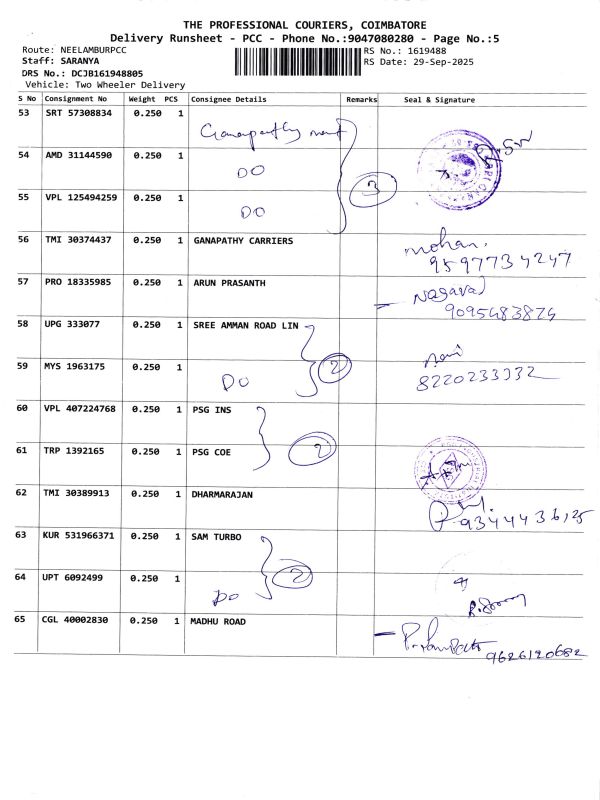 THE PROFESSIONAL COURIERS, COIMBATORE
Delivery Runsheet - PCC - Phone No.:9047080280 - Page No.:5
Route: NEELAMBURPCC RS No.: 1619488
Staff: SARANYA RS Date: 29-Sep-2025
DRS No.: DCJB161948805
Vehicle: Two Wheeler Delivery
S No Consignment No Weight PCS Consignee Details Remarks Seal & Signature
53 SRT 57308834 0.250 1 Ganapathy
54 AMD 31144590 0.250 1 DO
55 VPL 125494259 0.250 1 DO 3
56 TMI 30374437 0.250 1 GANAPATHY CARRIERS mohan.
9597734247
57 PRO 18335985 0.250 1 ARUN PRASANTH
58 UPG 333077 0.250 1 SREE AMMAN ROAD LIN
59 MYS 1963175 0.250 1 DO 2
60 VPL 407224768 0.250 1 PSG INS
61 TRP 1392165 0.250 1 PSG COE 2
62 TMI 30389913 0.250 1 DHARMARAJAN
63 KUR 531966371 0.250 1 SAM TURBO
64 UPT 6092499 0.250 1 DO 2
65 CGL 40002830 0.250 1 MADHU ROAD
9626120682